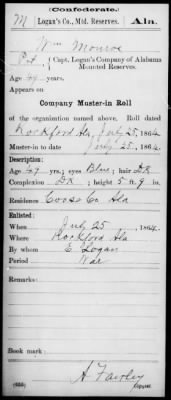 (Confederate.)
M Logan's Co., Mtd. Reserves. Ala.
Wm Monroe
Pvt, Capt. Logan's Company of Alabama
Mounted Reserves.
Age 47 years.
Appears on
Company Muster-in Roll
of the organization named above. Roll dated
Rockford Ala, July 25, 1864.
Muster-in to date July 25, 1864.
Description:
Age 47 yrs.; eyes Blue; hair DK
Complexion DK; height 5 ft. 9 in.
Residence Coosa Co. Ala
Enlisted:
When July 25, 1864.
Where Rockford Ala
By whom E Logan
Period War
Remarks:
Book mark:
A Fawley
Copyist.